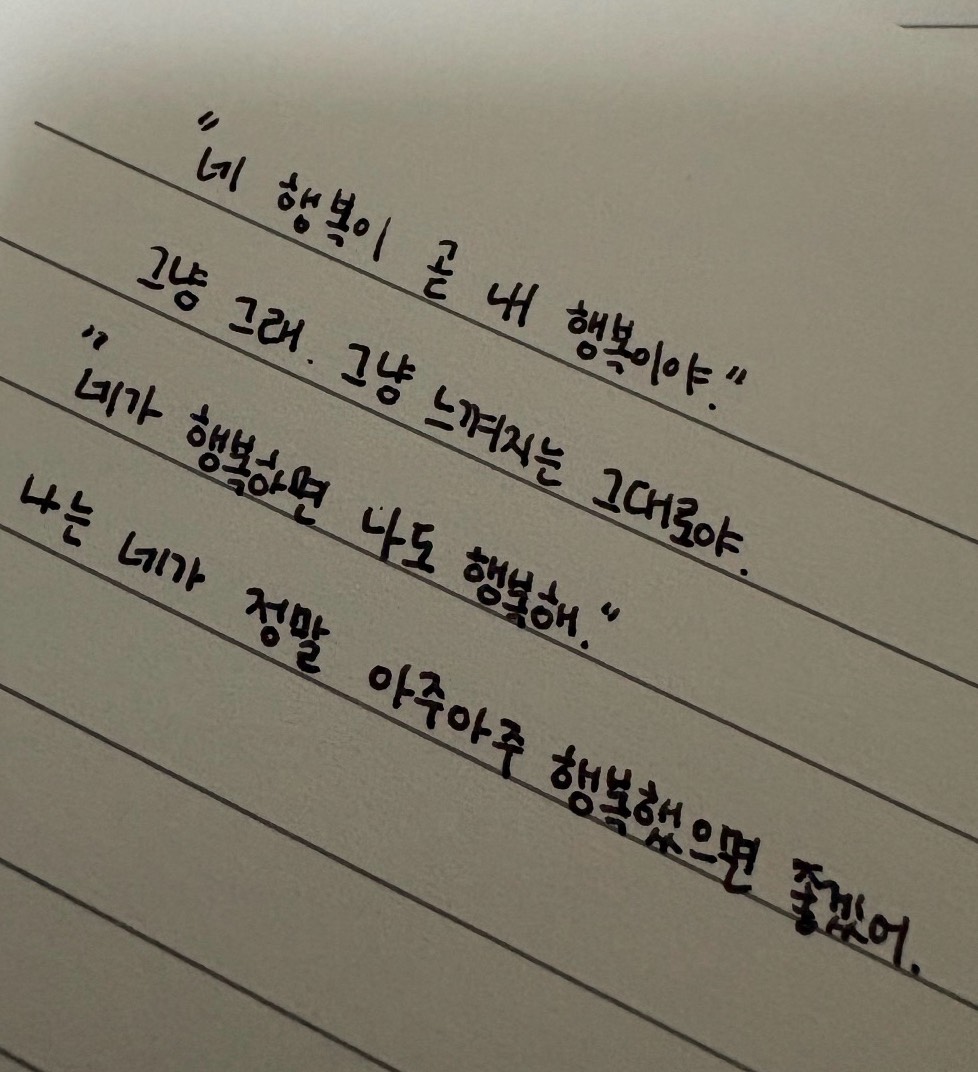 "네 행복이 곧 내 행복이야."
그냥 그래. 그냥 느껴지는 그대로야.
"네가 행복하면 나도 행복해."
나는 네가 정말 아주아주 행복했으면 좋겠어.